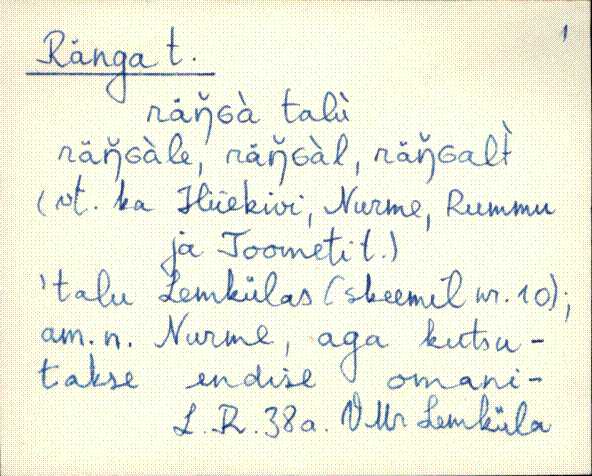 Ränga t. 1
räŋ̆ɢà talù
räŋ̆ɢàle, räŋ̆ɢàl, räŋ̆ɢalt̀
(vt. ka Hiiekivi, Nurme, Rummu
ja Toometi t.)
'talu Lemkülas (skeemil nr. 10);
am. n. Nurme, aga kutsu-
takse endise omani-
L. R. 38 a. VMr Lemküla